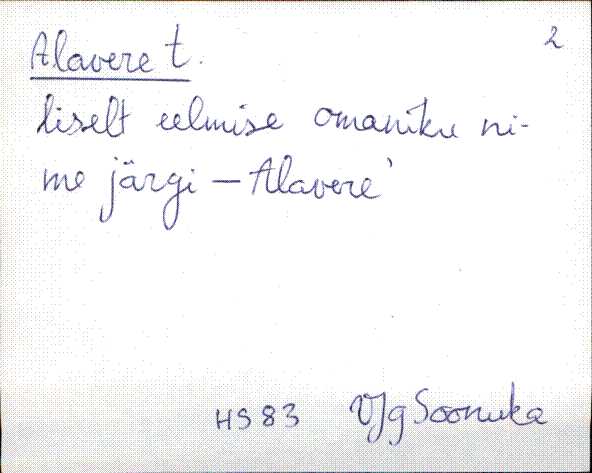 2
Alavere t.
liselt eelmise omaniku ni-
me järgi – Alavere'
HS 83 VJg Soonuka